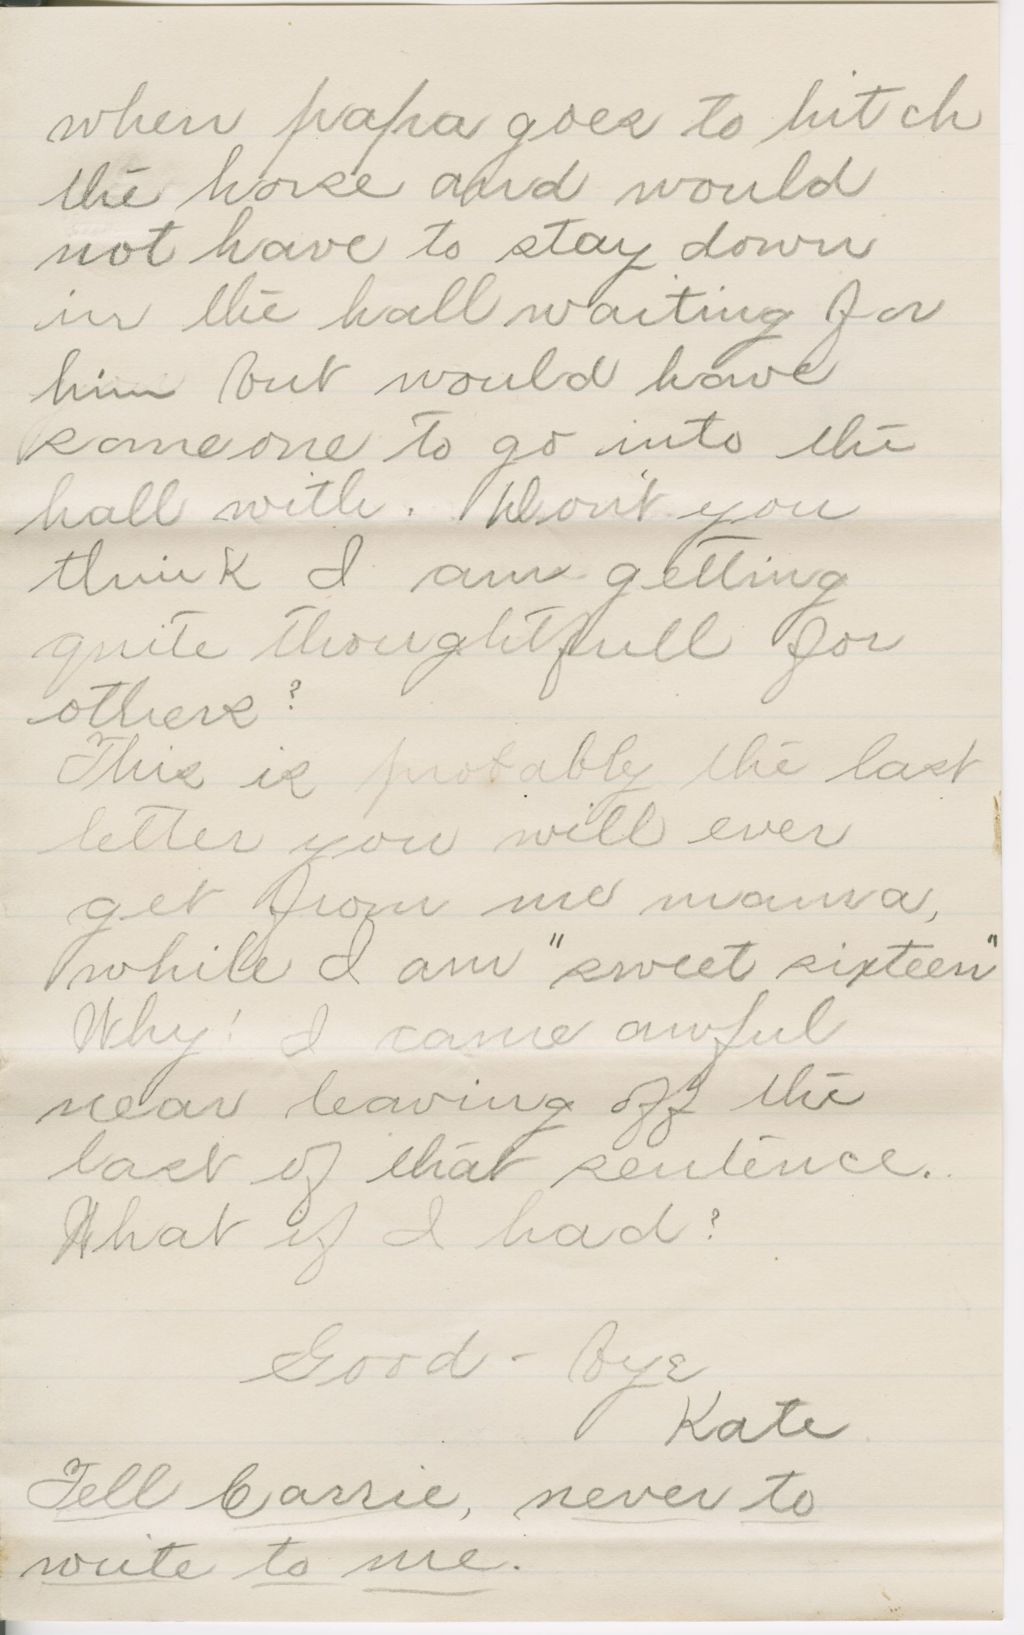 when papa goes to hitch
the horse and would
not have to stay down
in the hall waiting for
him but would have
someone to go into the
hall with. Don't you
think I am getting
quite thoughtfull for
others?
This is probably the last
letter you will ever
get from me mama,
while I am "sweet sixteen"
Why! I came awful
near leaving off the
last of that sentence.
What if I had?
Good - bye
Kate
Tell Carrie, never to
write to me.